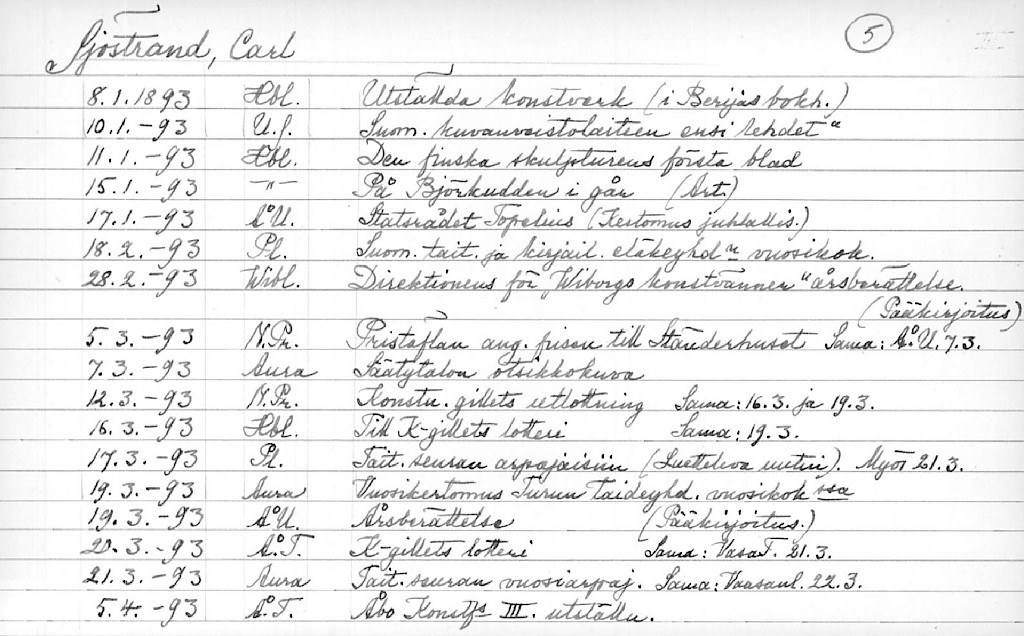 Sjöstrand, Carl 5
8.1.1893 Hbl. Utstälda konstverk (i Berijas bokh.)
10.1.-93 U.S. Suom. kuvanveistolaitteen ensi lehdet"
11.1.-93 Hbl. Den finska skulpturens första blad
15.1.-93 -"- På Björkudden i går (Art.)
17.1.-93 Å.U. Statsrådet Topelius (Kertomus juhlallis.)
18.2.-93 Pl. Suom. tait. ja kirjail. eläkeyhd:n vuosikok.
28.2.-93 Wibl. Direktionens för „Wiborgs konstvänner" årsberättelse.
(Pääkirjoitus)
5.3.-93 N.Pr. Pristäflan ang. frisen till Ständerhuset Sama: Å.U. 7.3.
7.3.-93 Aura Säätytalon otsikkokuva
12.3.-93 N.Pr. Konstn. gillets utlottning Sama: 16.3. ja 19.3.
16.3.-93 Hbl. Till K-gillets lotteri Sama: 19.3.
17.3.-93 Pl. Tait. seuran arpajaisiin (Luetteleva uutin). Myös 21.3.
19.3.-93 Aura Vuosikertomus Turun taideyhd. vuosikok:ssa
19.3.-93 Å.U. Årsberättelse (Pääkirjoitus.)
20.3.-93 Å.T. K-gillets lotteri Sama: Vasa T. 21.3.
21.3.-93 Aura Tait. seuran vuosiarpaj. Sama: Vaasanl. 22.3.
5.4.-93 Å.T. Åbo Konstf:s III. utställn.